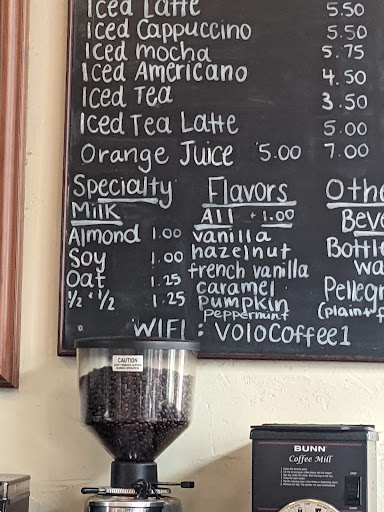 Iced Latte 5.50
Iced Cappuccino 5.50
Iced mocha 5.75
Iced Americano 4.50
Iced Tea 3.50
Iced Tea Latte 5.00
Orange Juice 5.00 7.00
Specialty Milk
Almond 1.00
Soy 1.00
Oat 1.25
½ & ½ 1.25
Flavors
All + 1.00
vanilla
hazelnut
french vanilla
caramel
pumpkin
peppermint
Othe
Beve
Bottle
wa
Pellegr
(plain + f
WIFI : VoloCoffee1
CAUTION
BUNN
Coffee Mill